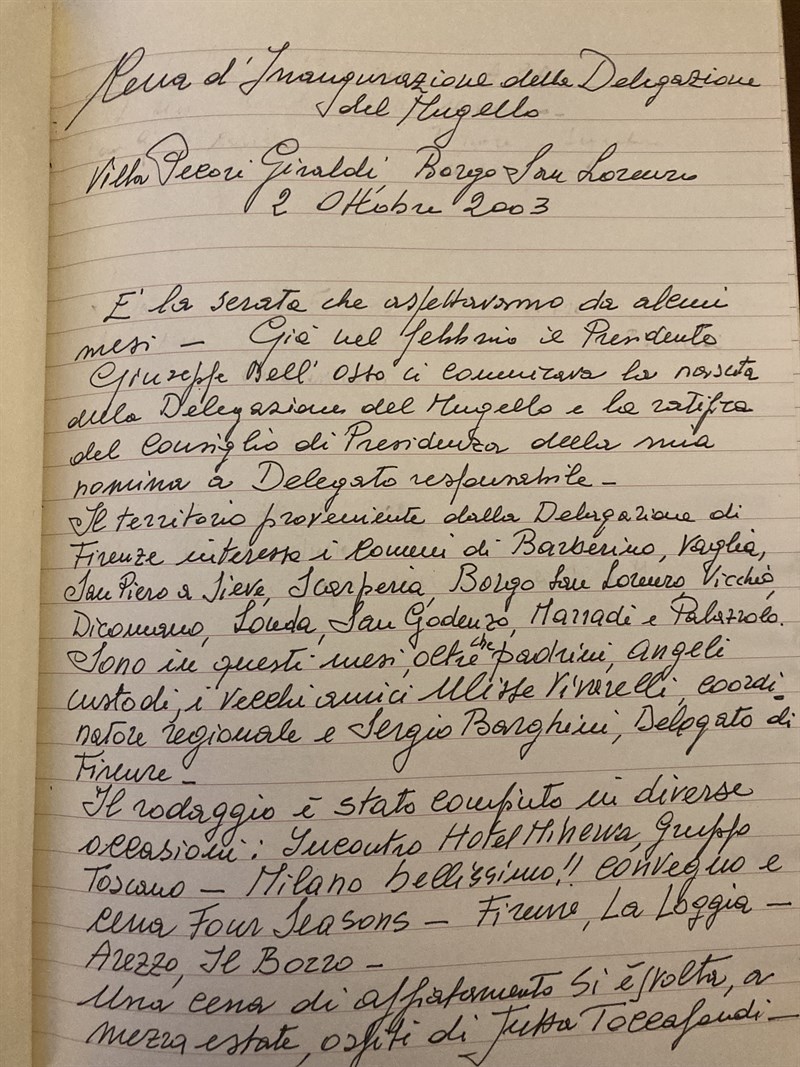 Cena d'Inaugurazione della Delegazione
del Mugello
Villa Pecori Giraldi Borgo San Lorenzo
2 Ottobre 2003
E' la serata che aspettavamo da alcuni
mesi — Già nel febbraio il Presidente
Giuseppe Dell'Osso ci comunicava la nascita
della Delegazione del Mugello e la ratifica
del Consiglio di Presidenza della mia
nomina a Delegato responsabile —
Il territorio proveniente dalla Delegazione di
Firenze interessa i Comuni di Barberino, Vaglia,
San Piero a Sieve, Scarperia, Borgo San Lorenzo, Vicchio,
Dicomano, Londa, San Godenzo, Marradi e Palazzolo.
Sono in questi mesi, oltre che padrini, angeli
custodi, i vecchi amici Ulisse Vivarelli, coordi-
natore regionale e Sergio Borghini, Delegato di
Firenze —
Il rodaggio è stato compiuto in diverse
occasioni: Incontro Hotel Minerva, Gruppo
Toscano — Milano bellissimo!! Convegno e
cena Four Seasons — Firenze, La Loggia —
Arezzo, Il Borro —
Una cena di affiatamento si è svolta, a
mezza estate, ospiti di Jutta Toccafondi —